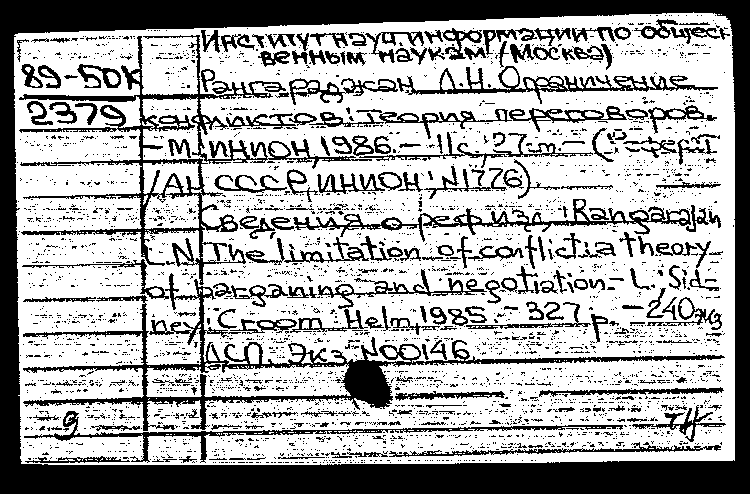 Институт науч информации по общест
венным наукам (Москва)
89-50К Рангараджан Л.Н. Ограничение
2379 конфликтов: теория переговоров.
- М.: ИНИОН, 1986. - 11с.; 27см. - (
/АН СССР, ИНИОН; N1776).
Сведения о реф.изд.: Rangarajan
L.N. The limitation of conflict: a theory
of barganing and negotiation. - L.; Sid=
ney: Croom Helm, 1985. - 327 p. - 240 экз
ДСП. Экз. N00146
9